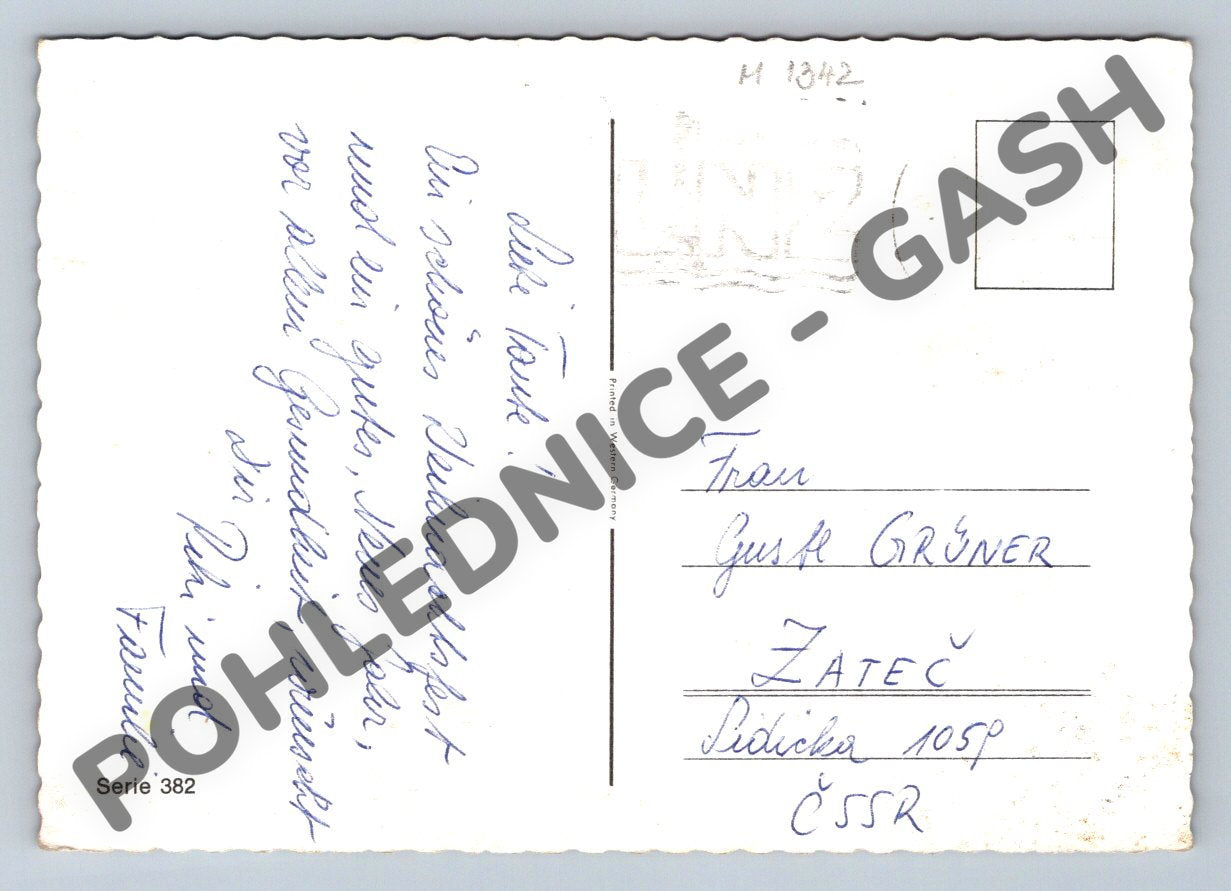 M 1342
Liebe Tante!
Ein schönes Weihnachtsfest
und ein gutes, Neues Jahr,
vor allem Gesundheit, wünscht
Dir
und
Familie.
Serie 382
Printed in Western Germany
Frau
Gustl GRÜNER
ZATEČ
Lidicka 1059
ČSSR
POHLEDNICE - GASH